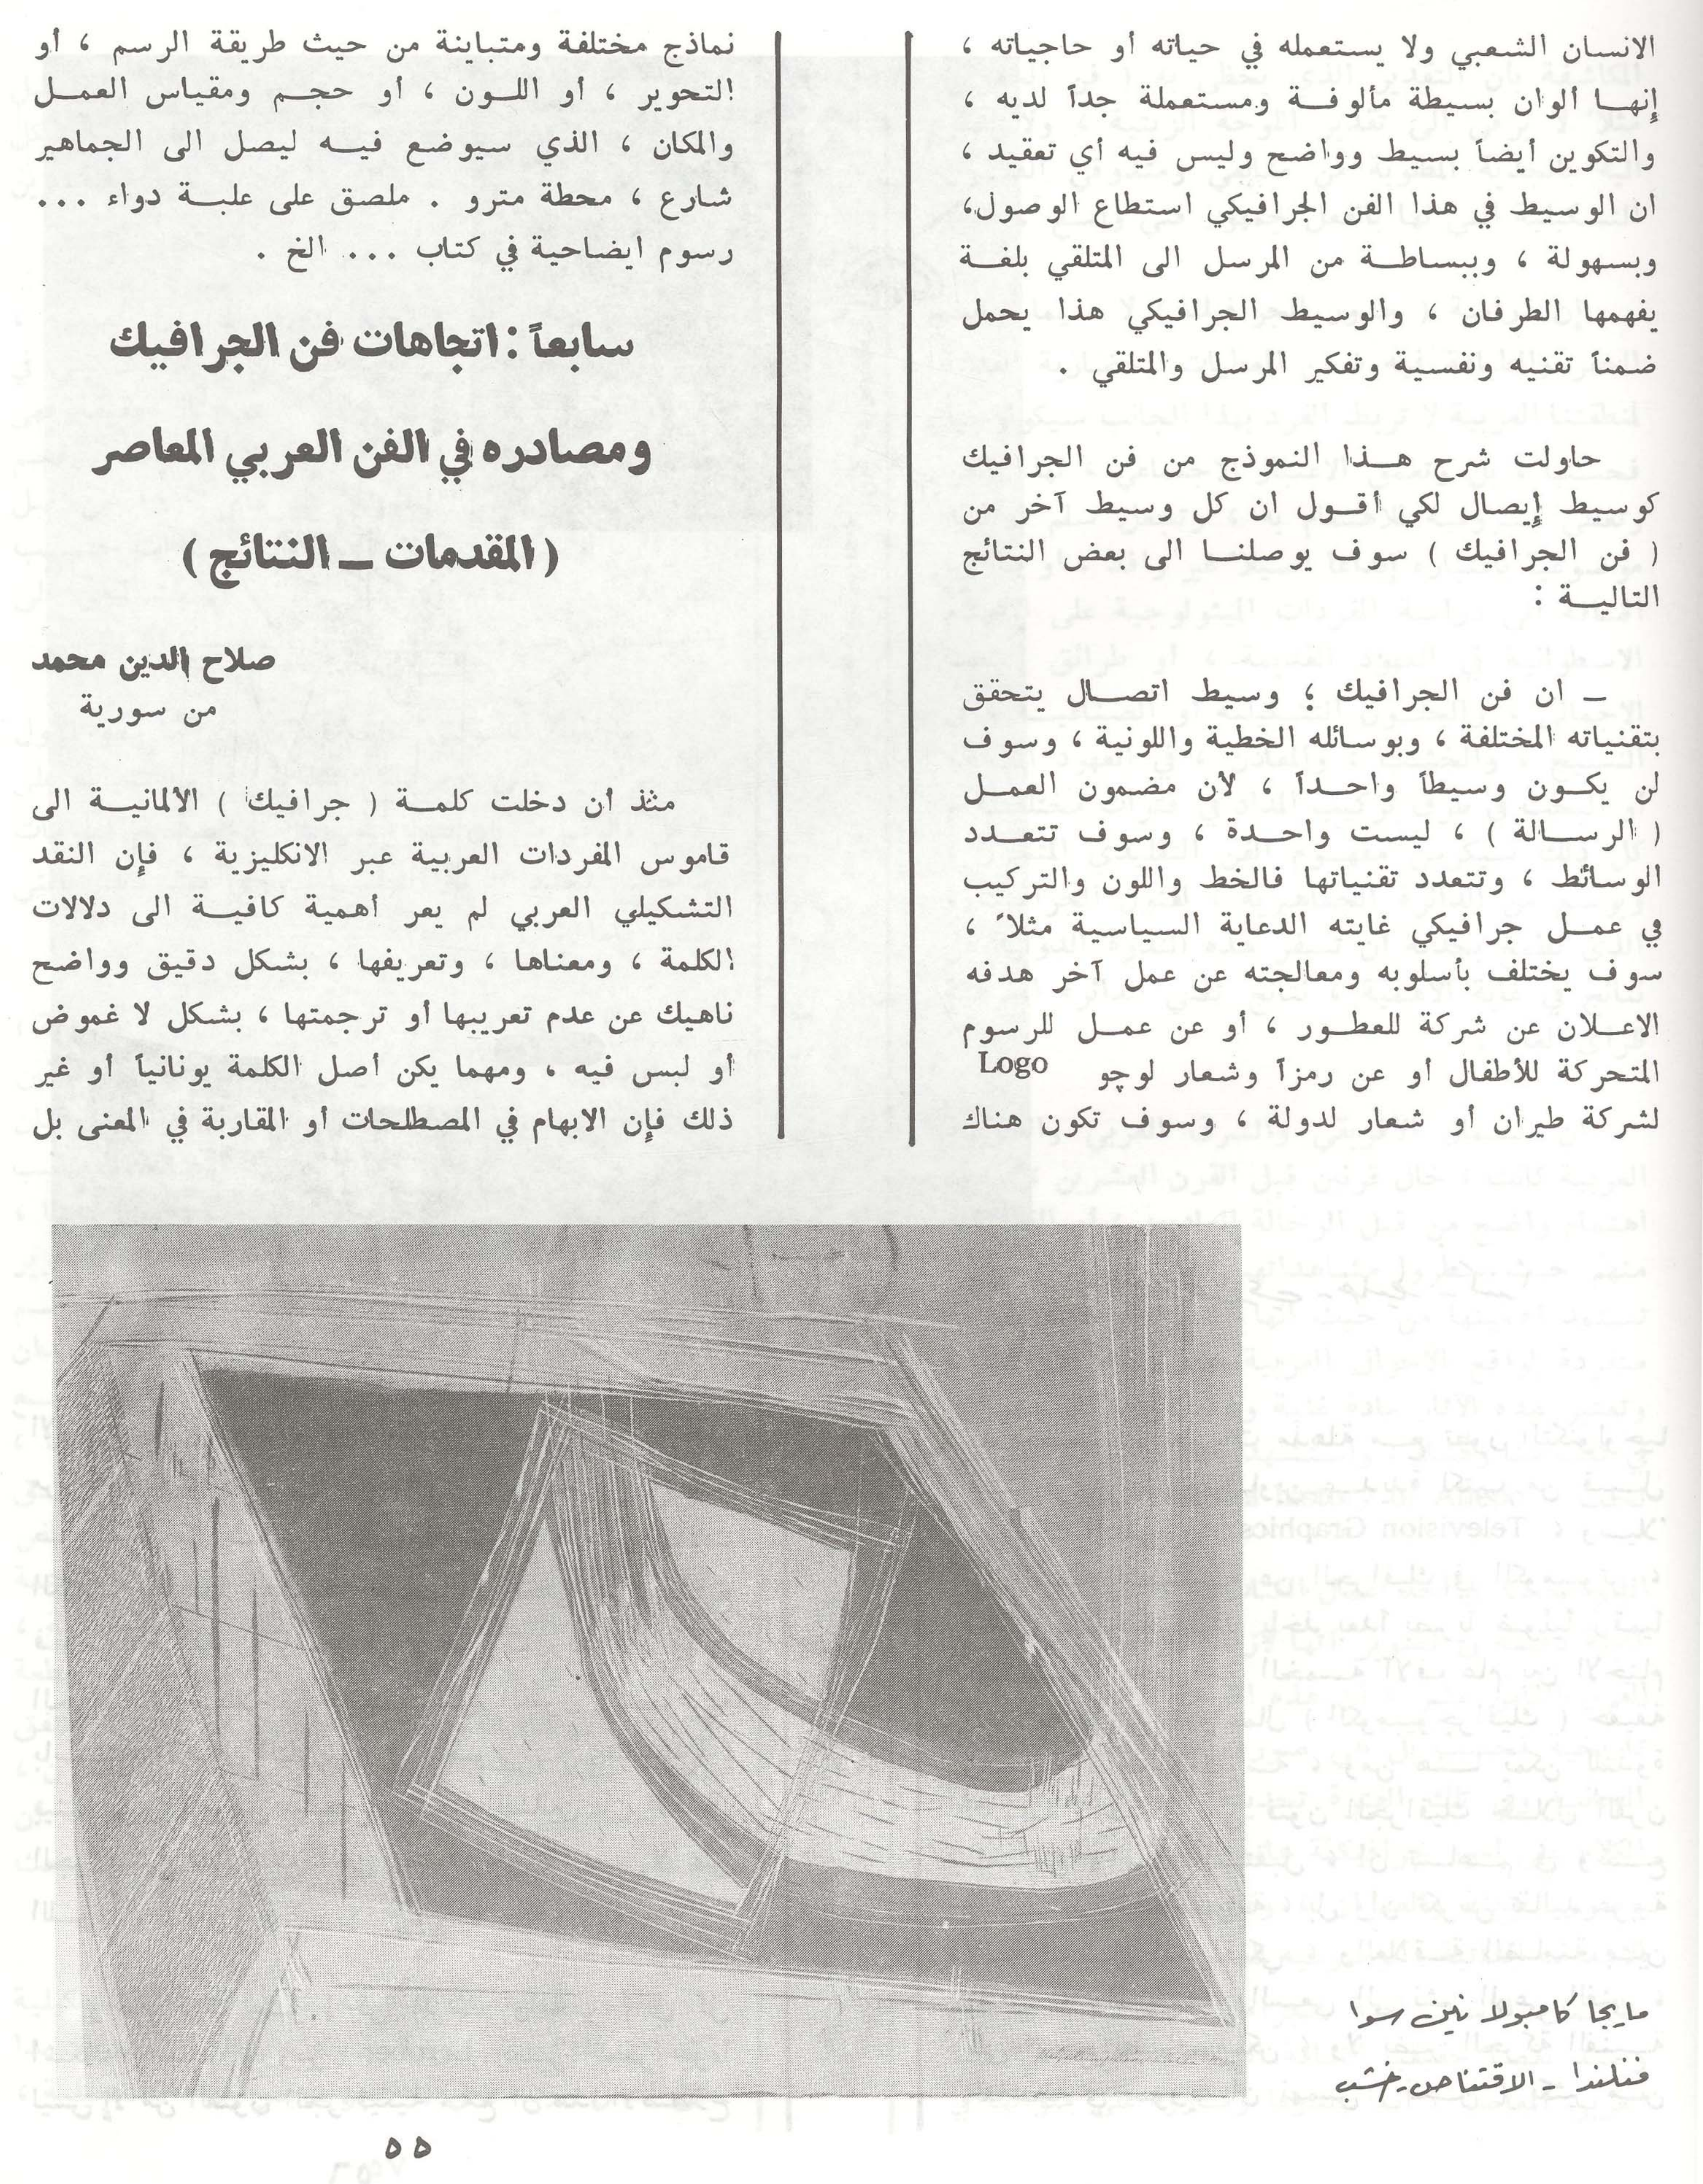 الانسان الشعبي ولا يستعمله في حياته أو حاجياته ،
إنهـا ألوان بسيطة مألوفـة ومستعملة جداً لديه ،
والتكوين أيضاً بسيط وواضح وليس فيه أي تعقيد ،
ان الوسيط في هذا الفن الجرافيكي استطاع الوصول،
وبسهولة ، وببساطـة من المرسل الى المتلقي بلغـة
يفهمها الطرفان ، والوسيط الجرافيكي هذا يحمل
ضمناً تقنيه ونفسية وتفكير المرسل والمتلقي .
حاولت شرح هـذا النموذج من فن الجرافيك
كوسيط إيصال لكي أقـول ان كل وسيط آخر من
( فن الجرافيك ) سوف يوصلنـا الى بعض النتائج
التاليـة :
ـ ان فن الجرافيك ؛ وسيط اتصـال يتحقق
بتقنياته المختلفة ، وبوسائله الخطية واللونية ، وسوف
لن يكـون وسيطاً واحـداً ، لأن مضمون العمل
( الرسـالة ) ، ليست واحـدة ، وسوف تتعـدد
الوسائط ، وتتعدد تقنياتها فالخط واللون والتركيب
في عمـل جرافيكي غايته الدعاية السياسية مثلاً ،
سوف يختلف بأسلوبه ومعالجته عن عمل آخر هدفه
الاعـلان عن شركة للعطـور ، أو عن عمـل للرسوم
المتحركة للأطفال أو عن رمزاً وشعار لوچو Logo
لشركة طيران أو شعار لدولة ، وسوف تكون هناك
نماذج مختلفة ومتباينة من حيث طريقة الرسم ، أو
التحوير ، أو اللـون ، أو حجـم ومقياس العمـل
والمكان ، الذي سيوضع فيـه ليصل الى الجماهير
شارع ، محطة مترو . ملصق على علبـة دواء ...
رسوم ايضاحية في كتاب ... الخ .
سابعاً : اتجاهات فن الجرافيك
ومصادره في الفن العربي المعاصر
( المقدمات ـ النتائج )
صلاح الدين محمد
من سورية
مثذ أن دخلت كلمـة ( جرافيك ) الألمانيـة الى
قاموس المفردات العربية عبر الانكليزية ، فإن النقد
التشكيلي العربي لم يعر أهمية كافيـة الى دلالات
الكلمة ، ومعناها ، وتعريفها ، بشكل دقيق وواضح
ناهيك عن عدم تعريبها أو ترجمتها ، بشكل لا غموض
أو لبس فيه ، ومهما يكن أصل الكلمة يونانياً أو غير
ذلك فإن الابهام في المصطلحات أو المقاربة في المعنى بل
مايجا كامبولا نين سوا
فنلندا ـ الاقتناص ـ خشب
٥٥